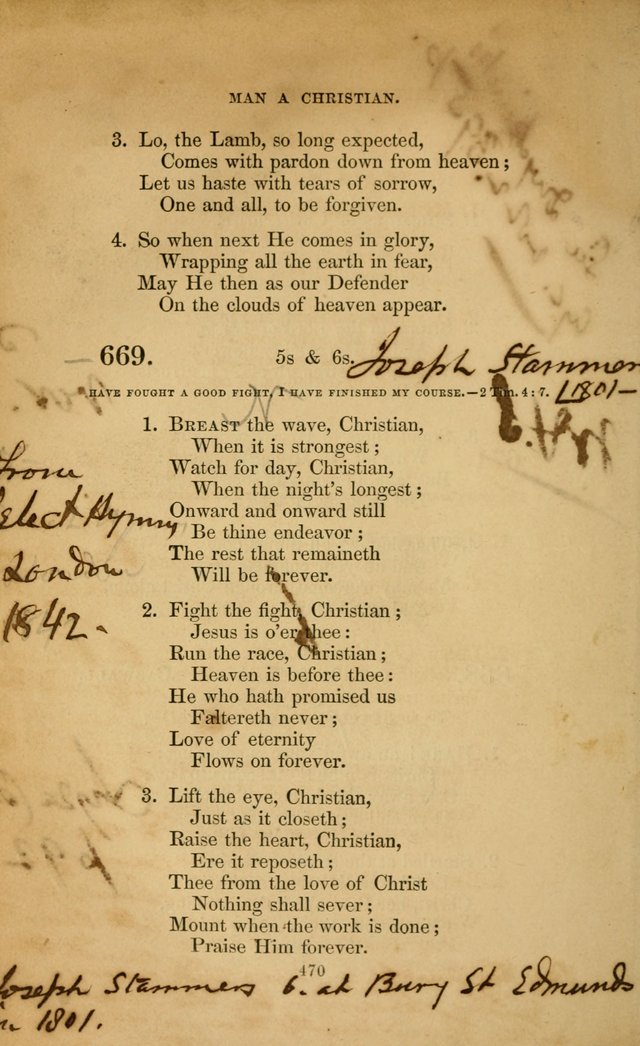 MAN A CHRISTIAN.
3. Lo, the Lamb, so long expected,
Comes with pardon down from heaven;
Let us haste with tears of sorrow,
One and all, to be forgiven.
4. So when next He comes in glory,
Wrapping all the earth in fear,
May He then as our Defender
On the clouds of heaven appear.
669. 5s & 6s. Joseph Stammers
HAVE FOUGHT A GOOD FIGHT, I HAVE FINISHED MY COURSE.—2 Tim. 4: 7. 1801—
1. BREAST the wave, Christian,
When it is strongest;
Watch for day, Christian,
When the night's longest;
Onward and onward still
Be thine endeavor;
The rest that remaineth
Will be forever.
From
Select Hymns
London
1842.
2. Fight the fight, Christian;
Jesus is o'er thee:
Run the race, Christian;
Heaven is before thee:
He who hath promised us
Faltereth never;
Love of eternity
Flows on forever.
3. Lift the eye, Christian,
Just as it closeth;
Raise the heart, Christian,
Ere it reposeth;
Thee from the love of Christ
Nothing shall sever;
Mount when the work is done;
Praise Him forever.
470
Joseph Stammers b. at Bury St Edmunds
in 1801.